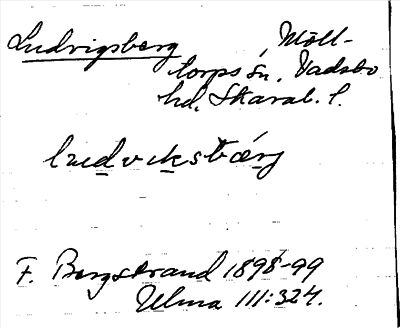 Ludvigsberg, Möll-
torps sn. Vadsbo
hd, Skarab. l.
ludvɩksbærj
F. Bergstrand 1898-99
Ulma 111:324.